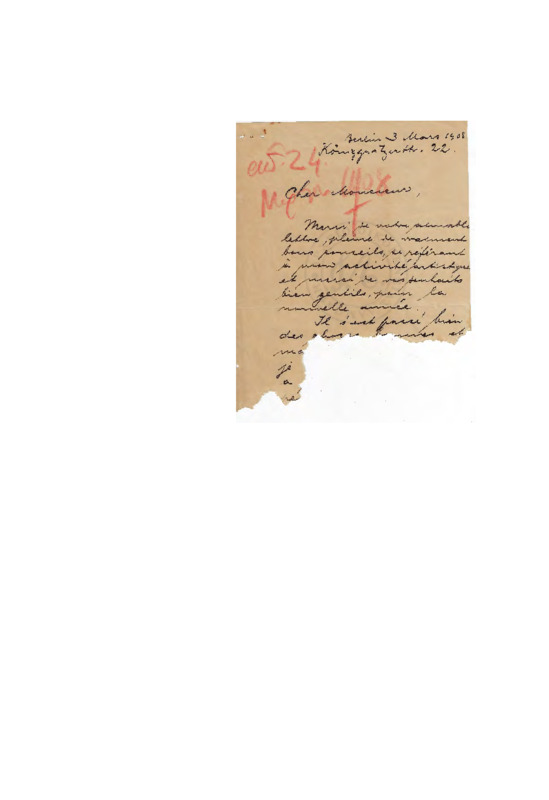 Berlin 3 Mars 1908
Königgrätzerstr. 22.
24
Cher Monsieur,
Merci de votre aimable
lettre, pleine de vraiment
bons conseils, se référant
à mon activité artistique
et merci de vos souhaits
bien gentils, pour la
nouvelle année.
Il s'est passé bien
des choses et
ma
je
a
ré